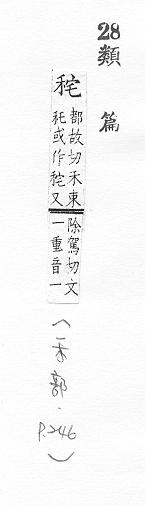 28類篇
秺
都故切禾束
秅或作秺又
除駕切文
一重音一
(禾部.P.246)